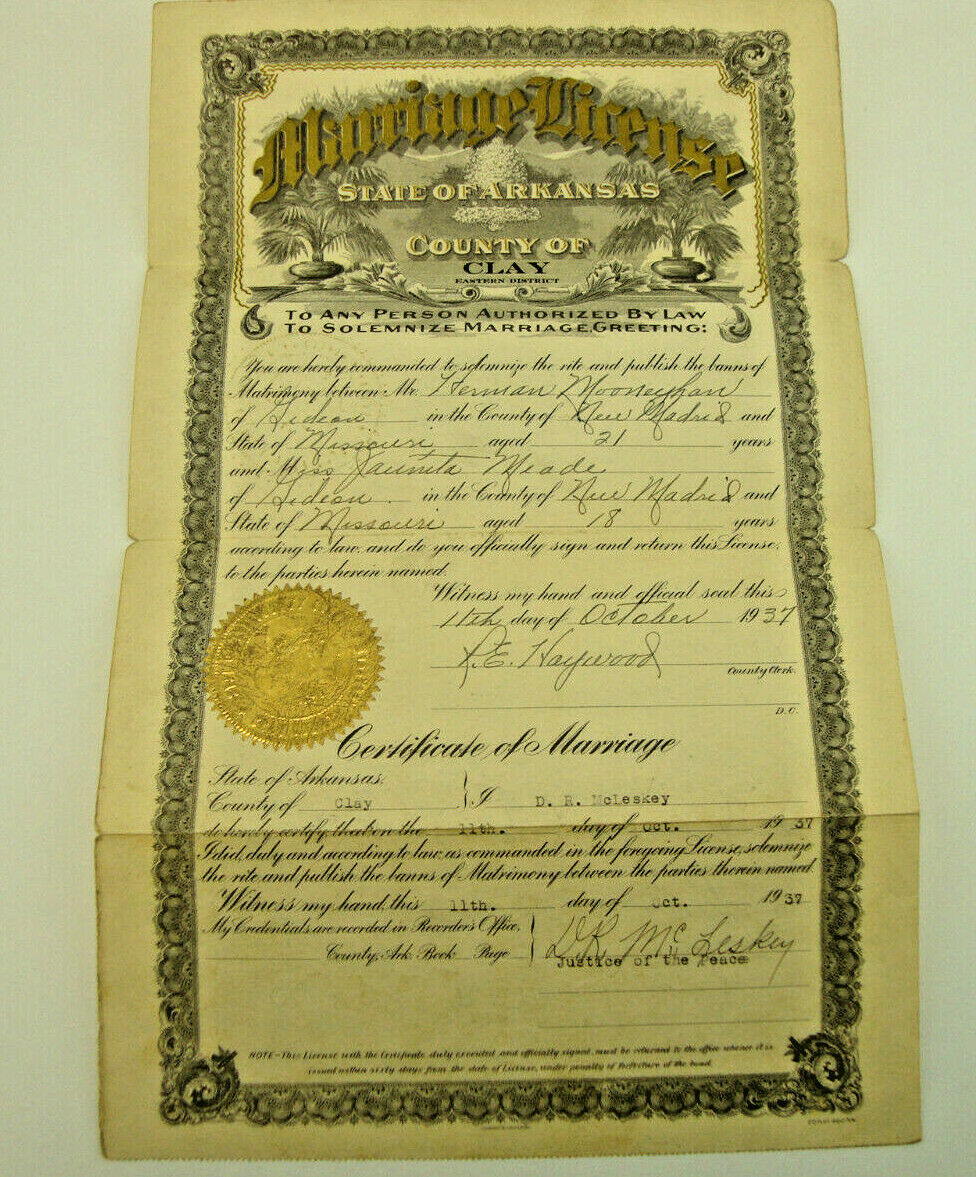 Marriage License
STATE OF ARKANSAS
COUNTY OF
CLAY
EASTERN DISTRICT
TO ANY PERSON AUTHORIZED BY LAW
TO SOLEMNIZE MARRIAGE, GREETING:
You are hereby commanded to solemnize the rite and publish the banns of
Matrimony between Mr. Herman Mooneyhan
of Gideon in the County of New Madrid and
State of Missouri aged 21 years
and Miss Jaunita Meade
of Gideon in the County of New Madrid and
State of Missouri aged 18 years
according to law, and do you officially sign and return this License,
to the parties herein named.
Witness my hand and official seal this
11th day of October 1937
Haywood
County Clerk.
D.C.
Certificate of Marriage
State of Arkansas,
County of Clay } I D. R. McLeskey
do hereby certify, that on the 11th. day of Oct. 1937
I did, duly and according to law, as commanded in the foregoing License, solemnize
the rite and publish the banns of Matrimony between the parties therein named.
Witness my hand, this 11th. day of Oct. 1937
My Credentials are recorded in Recorder's Office,
County, Ark. Book Page
D.R. McLeskey
Justice of the Peace
NOTE-This License with the Certificate duly executed and officially signed must be returned to the office whence it is
issued within sixty days from the date of License, under penalty of forfeiture of the bond.